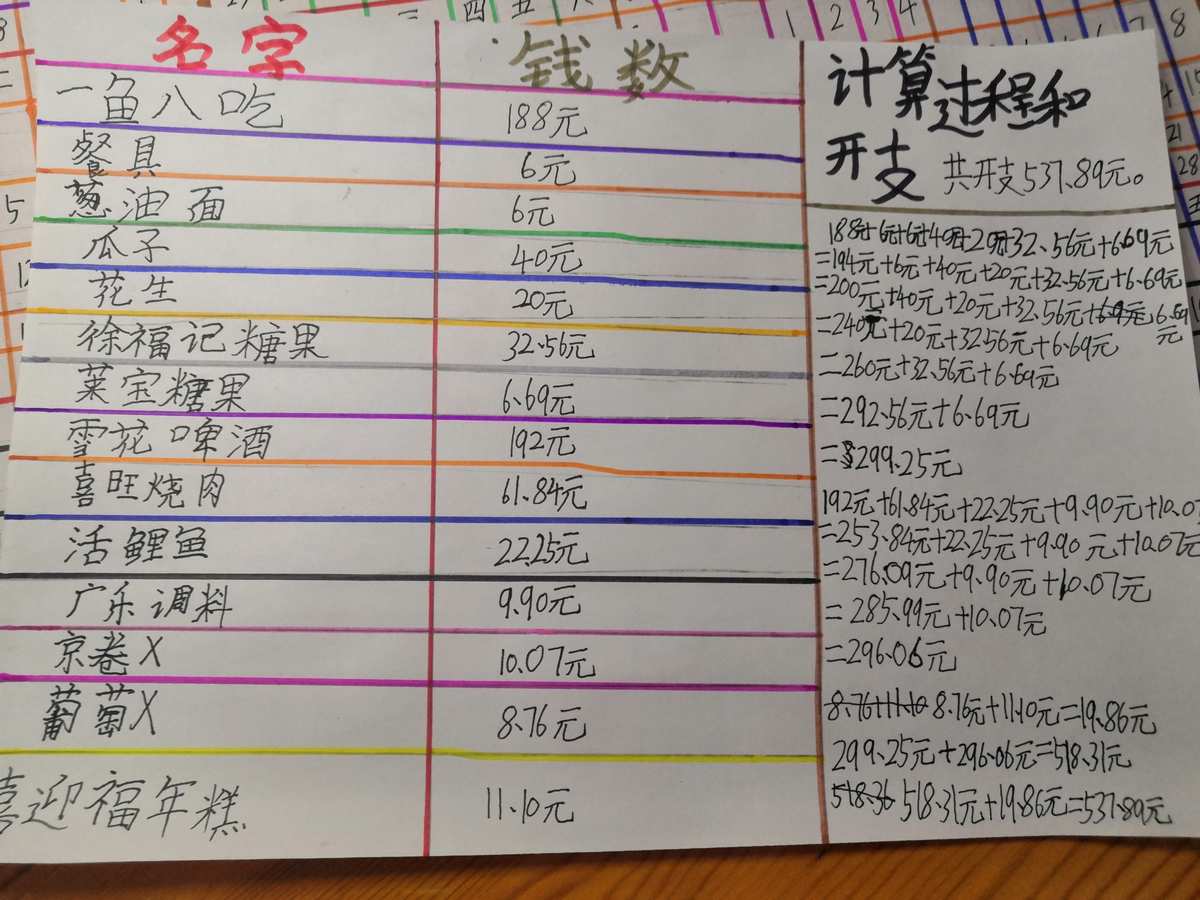 名字 钱数
一鱼八吃 188元
餐具 6元
葱油面 6元
瓜子 40元
花生 20元
徐福记糖果 32.56元
莱宝糖果 6.69元
雪花啤酒 192元
喜旺烧肉 61.84元
活鲤鱼 22.25元
广乐调料 9.90元
京卷X 10.07元
葡萄X 8.76元
喜迎福年糕 11.10元
计算过程和
开支 共开支537.89元。
188元+6元+6元+40元+20元+32.56元+6.69元
=194元+6元+40元+20元+32.56元+6.69元
=200元+40元+20元+32.56元+6.69元
=240元+20元+32.56元+6.69元
=260元+32.56元+6.69元
=292.56元+6.69元
=299.25元
192元+61.84元+22.25元+9.90元+10.07
=253.84元+22.25元+9.90元+10.07元
=276.09元+9.90元+10.07元
=285.99元+10.07元
=296.06元
8.76+11.10 8.76元+11.10元=19.86元
299.25元+296.06元=518.31元
518.36 518.31元+19.86元=537.89元